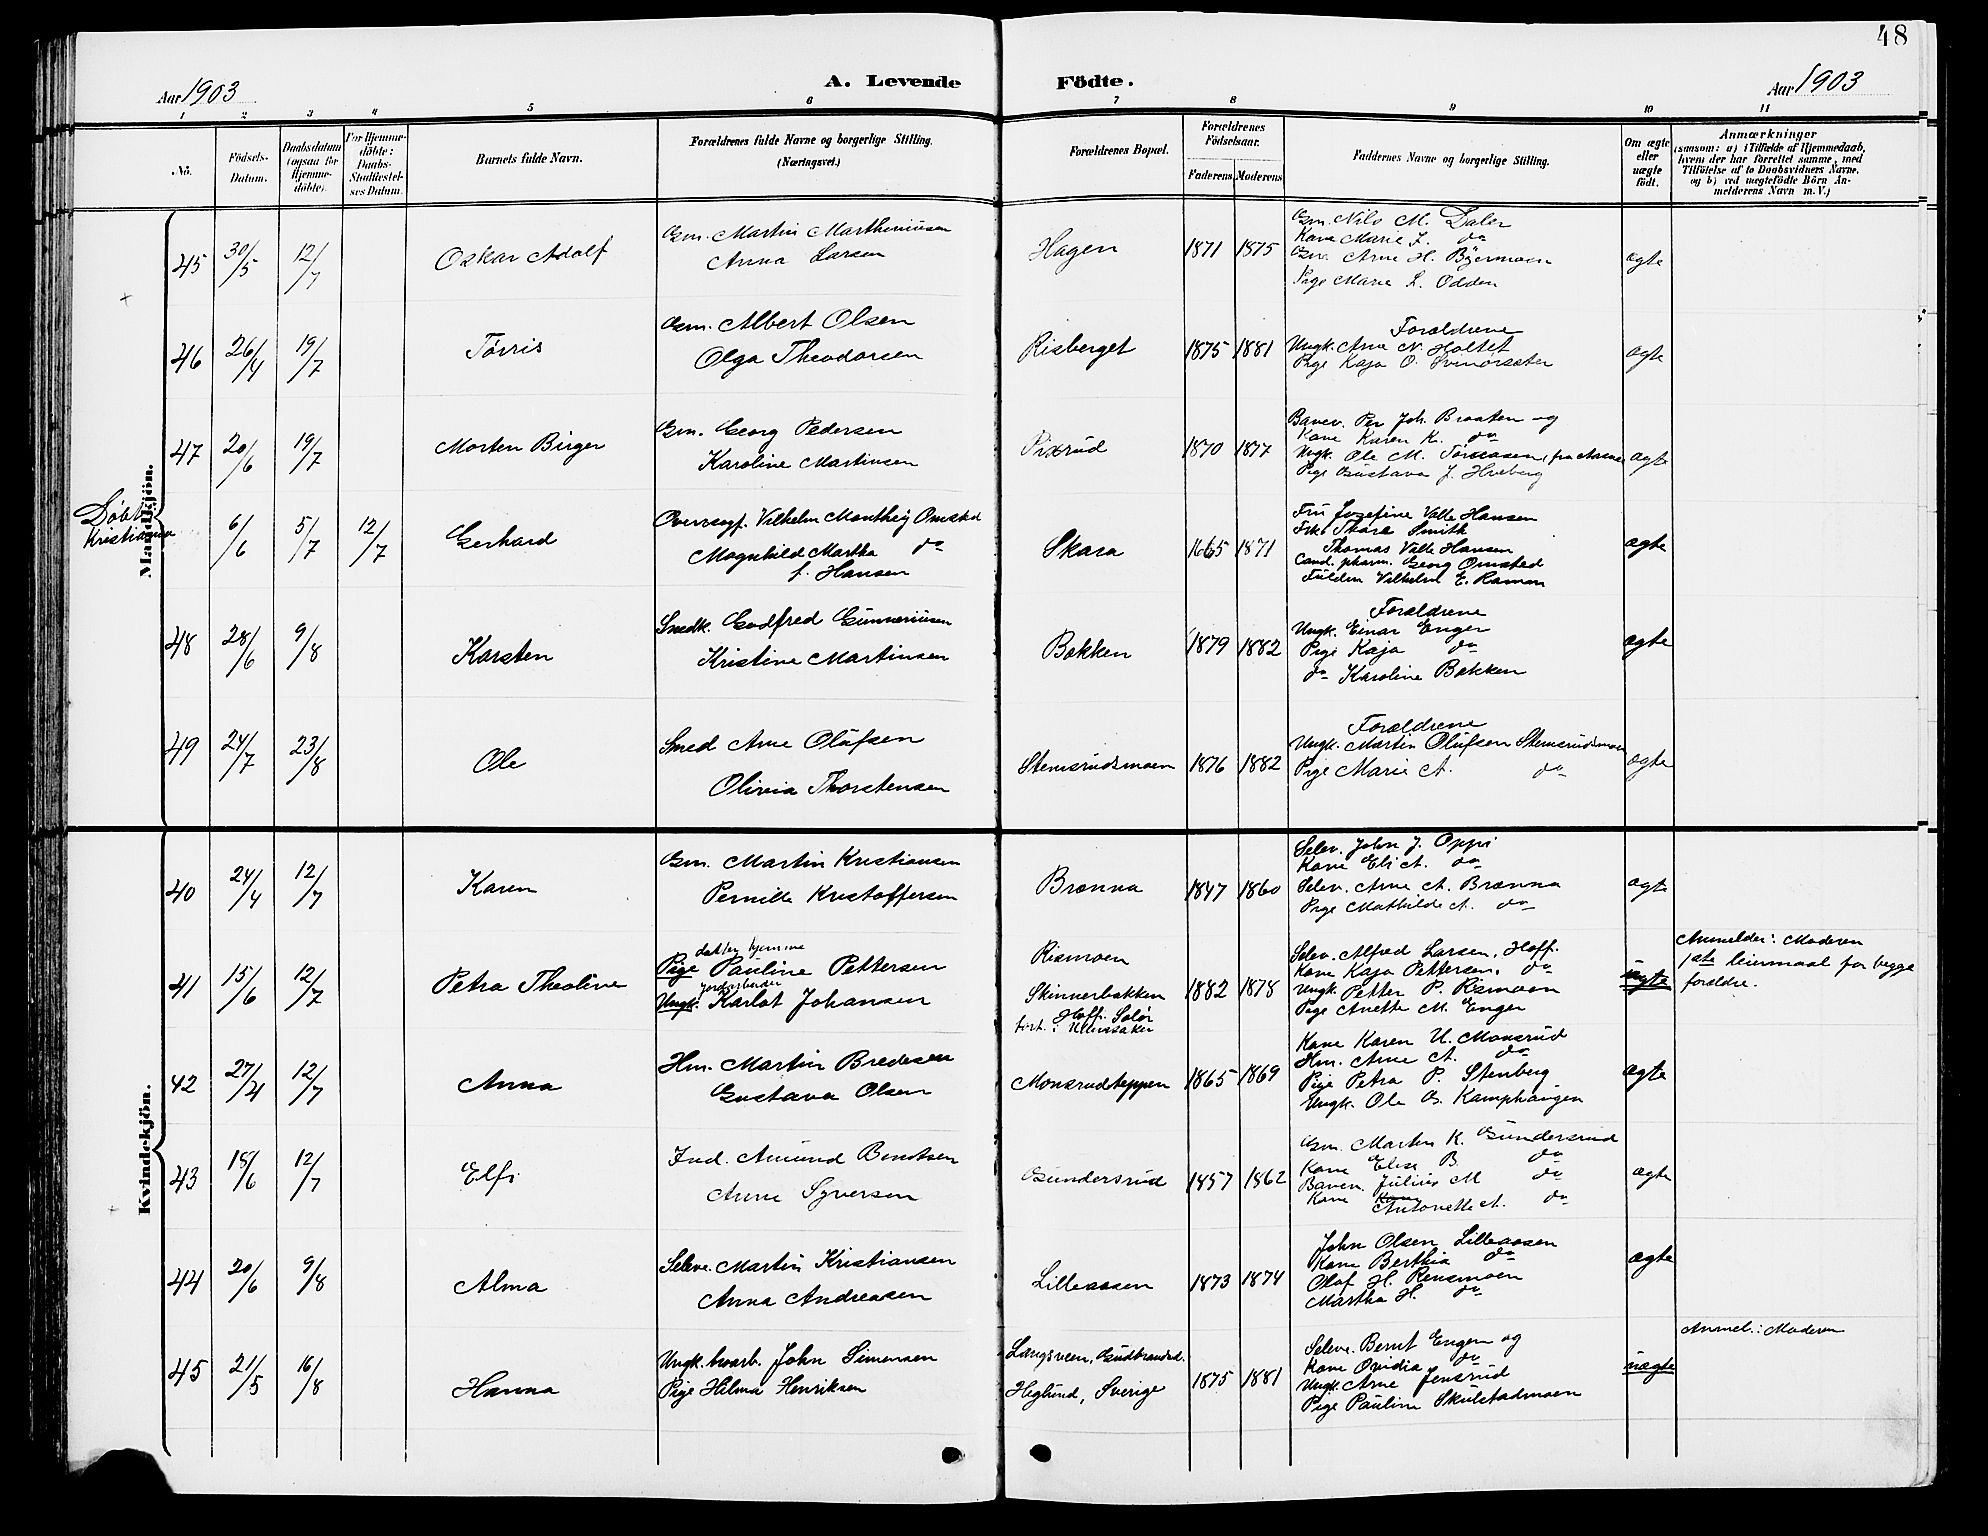 48
Aar 1903
A. Levende
Födte.
Aar 1903
1 2 3 4 5 6 7 8 9 10 11
No.
Födsels-
Datum.
Daabsdatum
(ogsaa for
Hjemme-
döbte).
For Hjemme-
döbte:
Daabs-
Stadfæstel-
ses Datum.
Barnets fulde Navn.
Forældrenes fulde Navne og borgerlige Stilling.
(Næringsvei.)
Forældrenes Bopæl.
Forældrenes
Födselsaar.
Faderens Moderens
Faddernes Navne og borgerlige Stilling.
Om ægte
eller
uægte
født.
Anmærkninger
(saasom: a) i Tilfælde af Hjemmedaab,
hvem der har forrettet samme, med
Tilföielse af to Daabsvidners Navne,
og b) ved uægtefödte Börn An-
melderens Navn m. V.)
Mandkjön.
45 30/5 12/7 Oskar Adolf
Gm. Martin Martheniusen
Anna Larsen
Hagen 1871 1875
Gm. Nils M. Daler
Kone Marie J. do
Gm. Arne H. Bjermoen
Pige Marie L. Odden
ægte
46 26/4 19/7 Tørris
Gm. Albert Olsen
Olga Theodorsen
Risberget 1875 1881
Forældrene
Ungk. Arne N. Holtet
Pige Kaja O. Svenørsæter
ægte
47 20/6 19/7 Morten Birger
Gm. Georg Pedersen
Karoline Martinsen
Pixrud 1870 1877
Banev. Per Joh. Braaten og
Kone Karen K. do
Ungk. Ole M. fra
Pige Gustava J. Hveberg
ægte
Døbt
Kristiania
6/6 5/7 12/7 Gerhard
Overregf. Vilhelm Monthey Omsted
Magnhild Martha do
f. Hansen
Skara 1865 1871
Fru Josefine Valle Hansen
Frk. Thora Smith
Thomas Valle Hansen
Cand. pharm. Georg Omsted
Fuldm. Vilhelm E. Raman
ægte
48 28/6 9/8 Karsten
Smedk. Godfred Gunneriusen
Kristine Martinsen
Bakken 1879 1882
Forældrene
Ungk. Einar Enger
Pige Kaja do
do Karoline Bakken
ægte
49 24/7 23/8 Ole
Smed Arne Olufsen
Olivia Thorstensen
Stemsrudsmoen 1876 1882
Forældrene
Ungk. Martin Olufsen Stemsrudsmoen
Pige Marie A. do
ægte
Kvindekjön.
40 24/4 12/7 Karen
Gm. Martin Kristiansen
Pernille Kristoffersen
Brænna 1847 1860
Selev. John J. Oppi
Kone Eli A. do
Selev. Arne A. Brænna
Pige Mathilde A. do
ægte
41 15/6 12/7 Petra Theoline
datter hjemme
Pige Pauline Pettersen
jordarbeider
Ungk. Karlot Johansen
Rismoen
Skinnerbakken
Hoff. Solør
1882 1878
Selev. Alfred Larsen, Hoff.
Kone Kaja Pettersen, do
Ungk. Petter P. Rismoen
Pige Anette M. Enger
uægte
Anmelder: Moderen
1ste leiermaal for begge
forældre.
42 27/4 12/7 Anna
Hm. Martin Bredesen
Gustava Olsen
Monsrudteppen 1865 1869
Kone Karen U. Monsrud
Hm. Arne A. do
Pige Petra P. Stenberg
Ungk. Ole O. Kamphaugen
ægte
43 18/6 12/7 Elfi
Ind. Amund Berntsen
Anne Syversen
Gundersrud 1857 1862
Gm. Martin K. Gundersrud
Kone Elise B. do
Banev. Julius M do
Kone Antonette A. do
ægte
44 20/6 9/8 Alma
Seleve. Martin Kristiansen
Anna Andreasen
Lilleaasen 1873 1874
John Olsen Lilleaasen
Kone Berthia do
Olaf H. Rensmoen
Martha H. do
ægte
45 21/5 16/8 Hanna
Ungk. hvarb. John Simensen
Pige Hilma Henriksen
Langsveen, Gudbrandsd.
Heglund, Sverige
1875 1881
Seleve. Bernt Engen og
Kone Ovidia do
Ungk. Arne Jensrud
Pige Pauline Skulstadmoen
uægte
Anmel.: Moderen